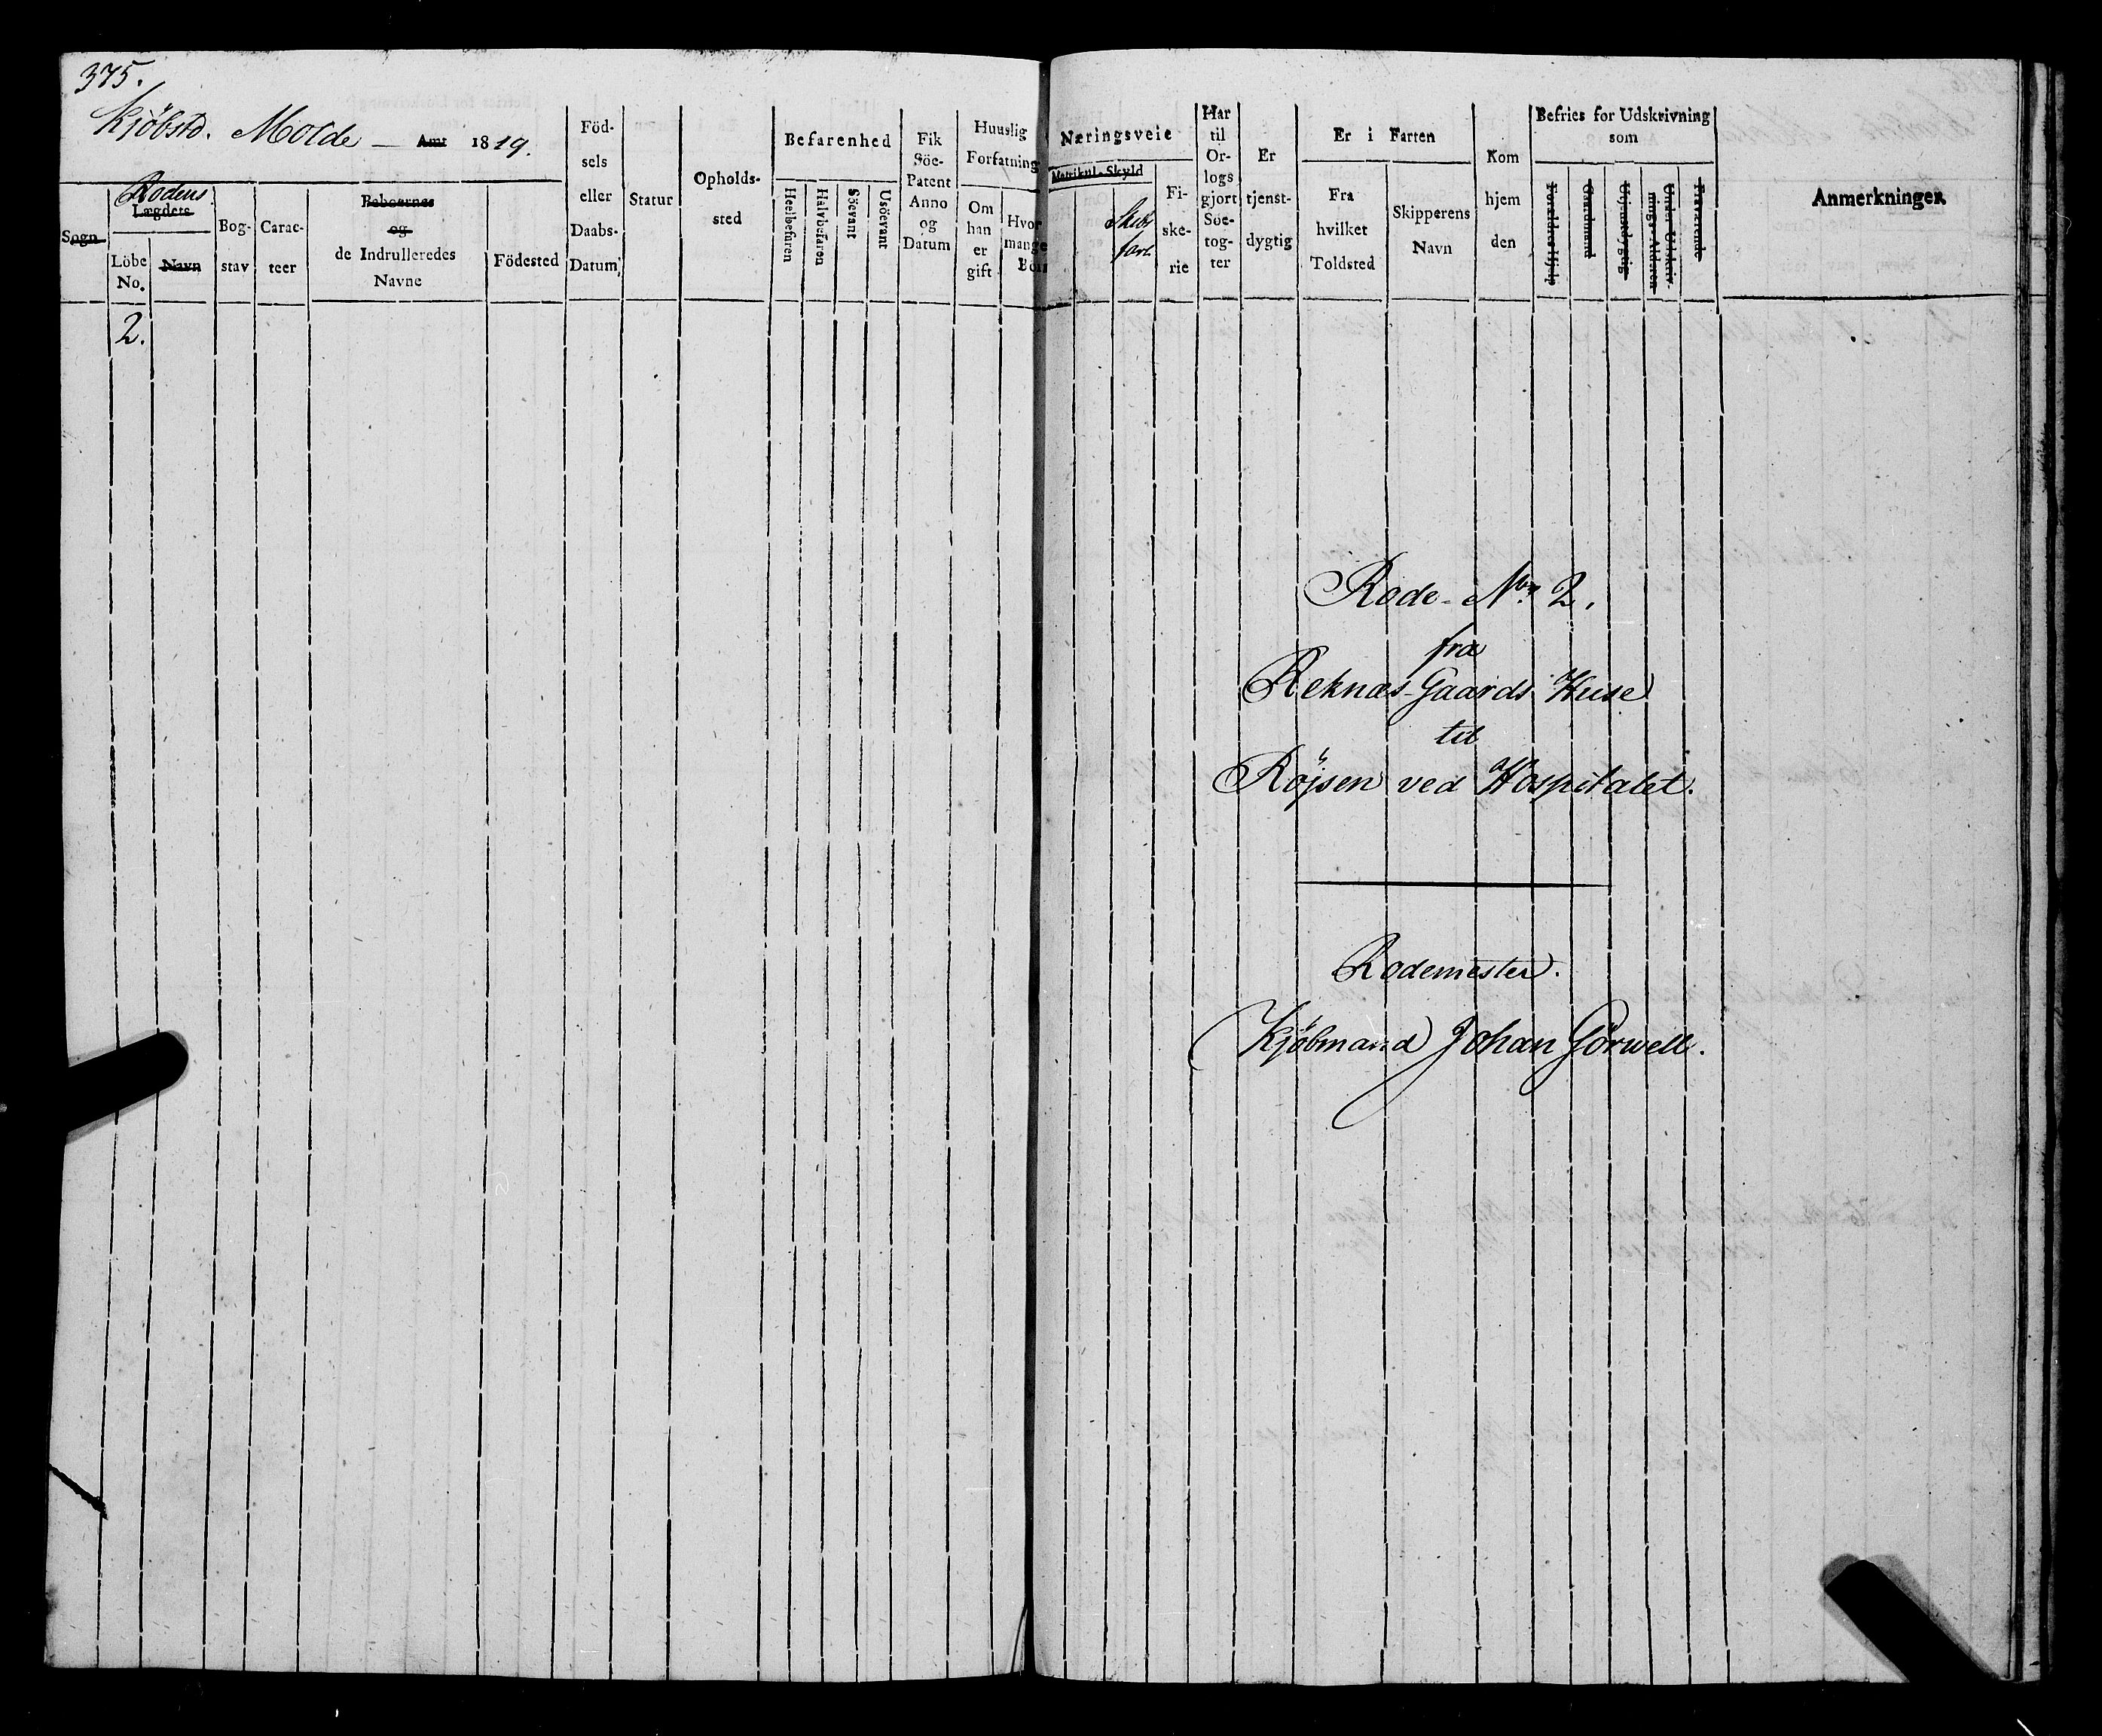 375.
Kjöbstd. Molde — Amt 1819.
Sogn
Rodens
Lægdets
Löbe No.
Navn
Bog-
stav
Carac-
teer
Beboernes
og
de Indrulleredes
Navne
Födested
Föd-
sels
eller
Daabs-
Datum
Statur
Opholds-
sted
Befarenhed
Heelbefaren
Halvbefaren
Söevant
Usöevant
Fik
Söe-
Patent
Anno
og
Datum
Huuslig
Forfatning
Om
han
er
gift
Hvor
mange
Börn
Næringsveie
Matrikul-Skyld
Skibs
fart
Fi-
ske-
rie
Har
til
Or-
logs
gjort
Söe-
tog-
ter
Er
tjenst-
dygtig
Er i Farten
Fra
hvilket
Toldsted
Skipperens
Navn
Kom
hjem
den
Befries for Udskrivning
som
Forældres Hjelp
Gaardmand
Utjenstdygtig
Under Udskriv-
nings-Alderen
Fraværende
Anmerkninger
2.
Rode No. 2.
fra
Reknæs-Gaards Huse
til
Röjsen ved Hospitalet.
Rodemester.
Kjöbmand Johan Görwell.